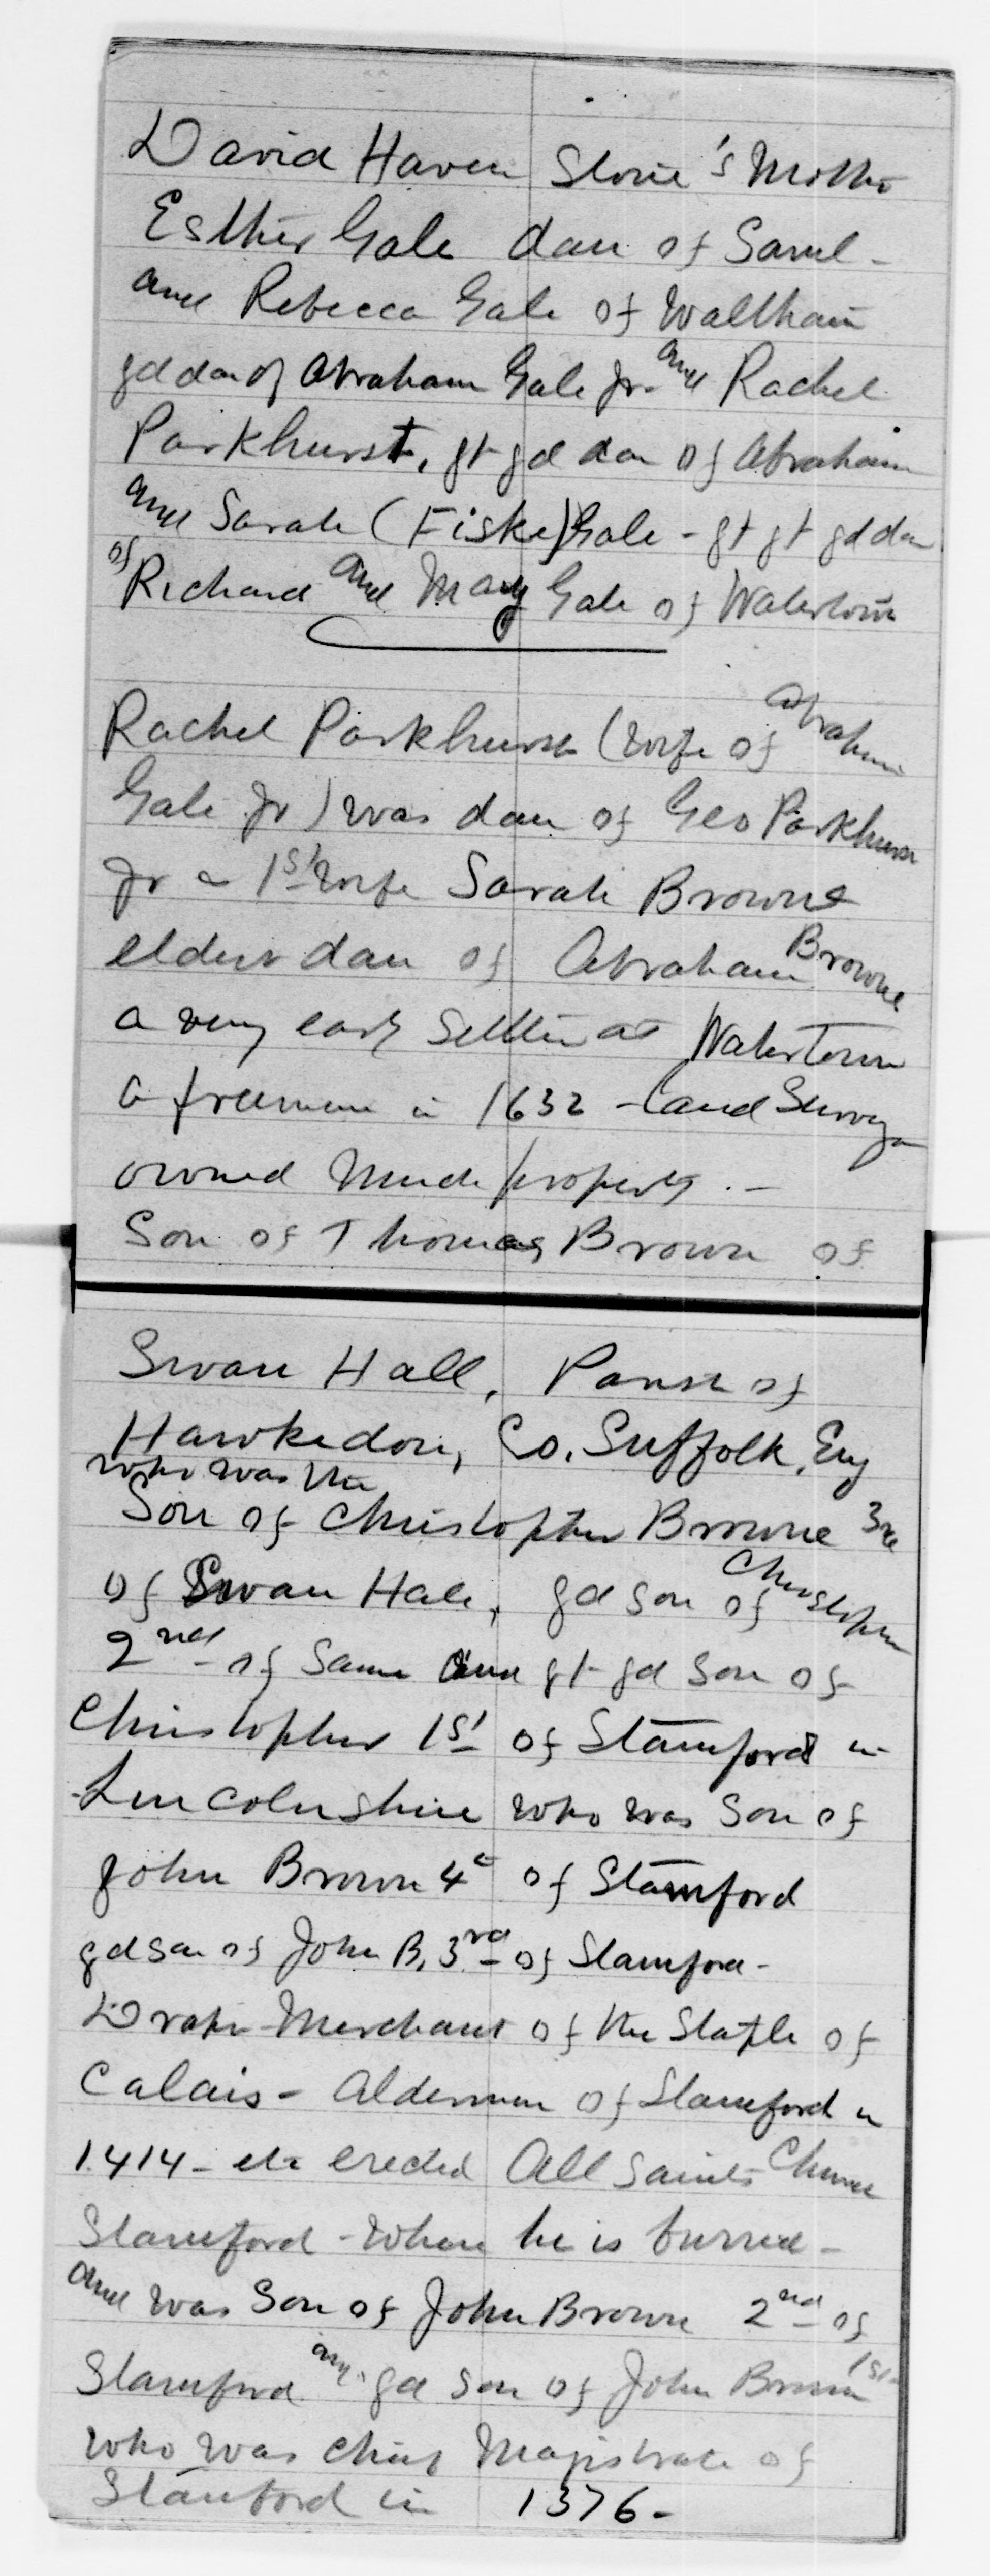 David Haven Stone's Mother
Esther Gale dau of Saml -
and Rebecca Gale of Waltham
gd dau of Abraham Gale Jr. and Rachel
Parkhurst, gt gd dau of Abraham
and Sarah (Fiske) Gale - gt gt gd dau
of Richard and Mary Gale of Watertown
Rachel Parkhurst (wife of Abraham
Gale Jr) was dau of Geo Parkhurst
Jr & 1st wife Sarah Browne
eldest dau of Abraham Browne
a very early settler at Watertown
a freeman in 1632 - Land Surveyor
owned much property. -
Son of Thomas Brown of
Swan Hall, Parish of
Hawkedon, Co. Suffolk, Eng
who was the
Son of Christopher Browne 3rd
of Swan Hall, gd son of Christopher
2nd of Same and gt gd son of
Christopher 1st of Stamford in
Lincolnshire who was son of
John Brown 4th of Stamford
gd son of John B, 3rd of Stamford -
Draper Merchant of the Staple of
Calais - Alderman of Stamford in
1414 - etc erected All Saints Church
Stamford - where he is burried -
and was Son of John Brown 2nd of
Stamford and gd son of John Brown 1st
who was chief Magistrate of
Stamford in 1376 -